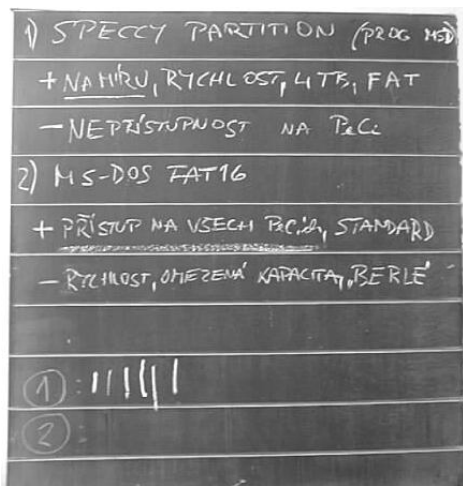 1) SPECCY PARTITION (PROG MSD)
+ NA MÍRU, RYCHLOST, 4TB, FAT
- NEPŘÍSTUPNOST NA PeCi
2) MS-DOS FAT16
+ PŘÍSTUP NA VŠECH PeCích, STANDARD
- RYCHLOST, OMEZENÁ KAPACITA, BERLE
1 :
2